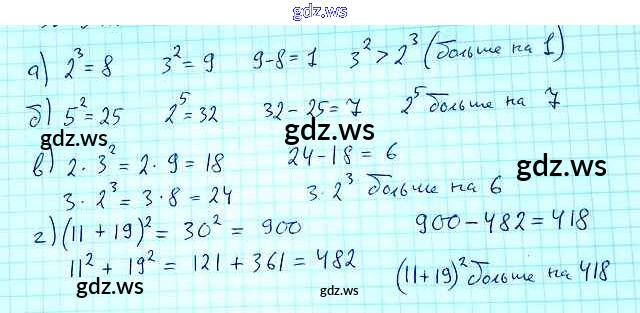 gdz.ws
gdz.ws
а) 2³ = 8 3² = 9 9-8=1 3² > 2³ (больше на 1)
б) 5² = 25 2⁵ = 32 32-25=7 2⁵ больше на 7
gdz.ws gdz.ws
в) 2·3² = 2·9 = 18 24-18 = 6 gdz.ws
3·2³ = 3·8 = 24 3·2³ больше на 6
gdz.ws
г) (11 + 19)² = 30² = 900 900-482=418
11² + 19² = 121 + 361 = 482 (11+19)² больше на 418
gdz.ws gdz.ws gdz.ws